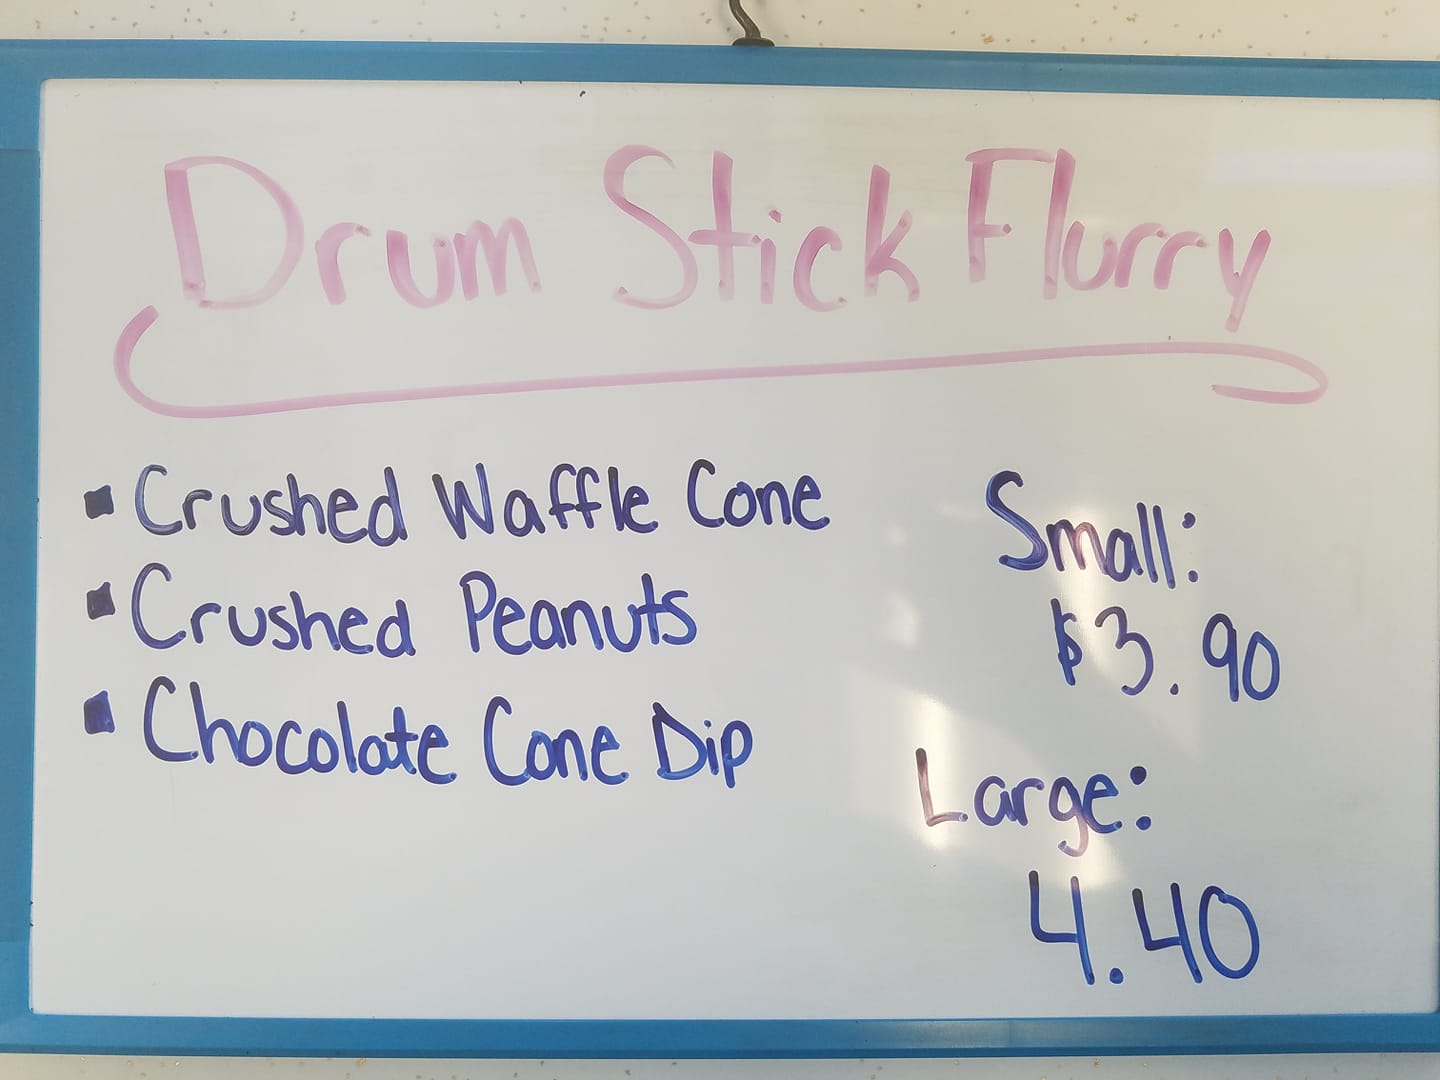 Drum Stick Flurry
▪ Crushed Waffle Cone
▪ Crushed Peanuts
▪ Chocolate Cone Dip
Small:
$3.90
Large:
4.40